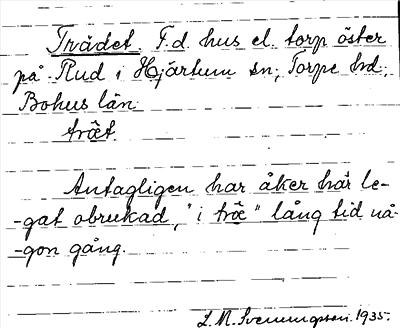 Trädet. F.d. hus el. torp öster
på Rud i Hjärtum sn; Torpe hd,
Bohus län.
trät
Antagligen har åker här le-
-gat obrukad, "i träe" lång tid nå-
-gon gång.
L. M. Svenungsson. 1935.